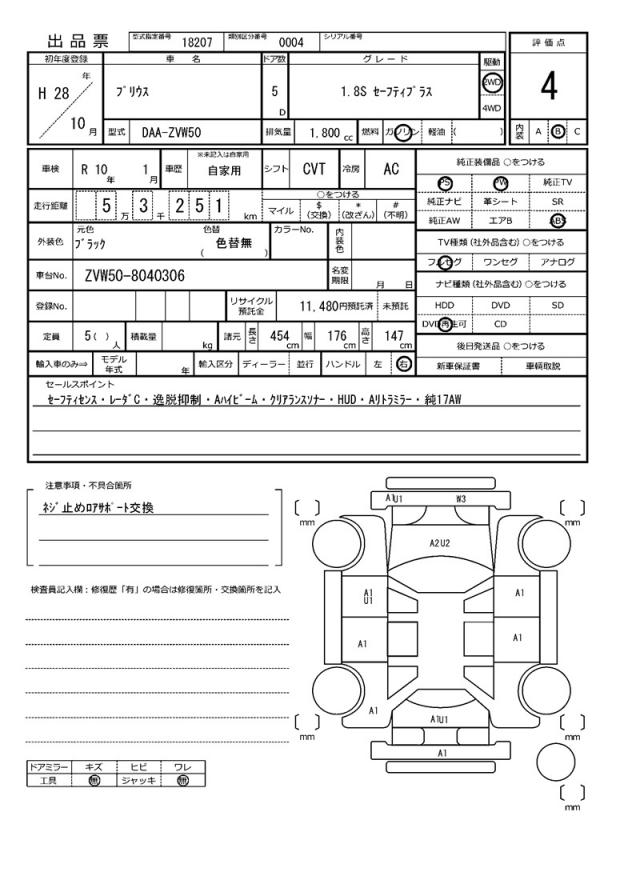 出品票 型式指定番号 18207 類別区分番号 0004 シリアル番号
評価点
初年度登録 車名 ドア数 グレード 駆動
H 28 年 10 月
プリウス 5 D 1.8S セーフティプラス 2WD 4WD
4
型式 DAA-ZVW50 排気量 1.800 cc 燃料 ガソリン 軽油 ( )
内装 A B C
車検 R 10 年 1 月 車歴 ※未記入は自家用 自家用 シフト CVT 冷房 AC
走行距離 5 万 3 千 2 5 1 km
○をつける
マイル $ (交換) * (改ざん) # (不明)
外装色 元色 ブラック 色替 色替無 ( ) カラーNo. 内装色
車台No. ZVW50-8040306 名変期限 月 日
登録No. リサイクル預託金 11,480円預託済 未預託
定員 5 ( ) 人 積載量 kg 諸元 長さ 454 cm 幅 176 cm 高さ 147 cm
輸入車のみ⇒ モデル年式 年 輸入区分 ディーラー 並行 ハンドル 左 右
純正装備品 ○をつける
PS PW 純正TV
純正ナビ 革シート SR
純正AW エアB ABS
TV種類 (社外品含む) ○をつける
フルセグ ワンセグ アナログ
ナビ種類 (社外品含む) ○をつける
HDD DVD SD
DVD再生可 CD
後日発送品 ○をつける
新車保証書 車輌取説
セールスポイント
セーフティセンス・レーダC・逸脱抑制・Aハイビーム・クリアランスソナー・HUD・Aリトラミラー・純17AW
注意事項・不具合箇所
ネジ止めロアサポート交換
検査員記入欄：修復歴「有」の場合は修復箇所・交換箇所を記入
ドアミラー キズ ヒビ ワレ
工具 無 ジャッキ 無
A1U1 W3
mm mm
A2U2
A1
U1
A1
A1 A1
A1
A1U1
mm mm
A1
mm